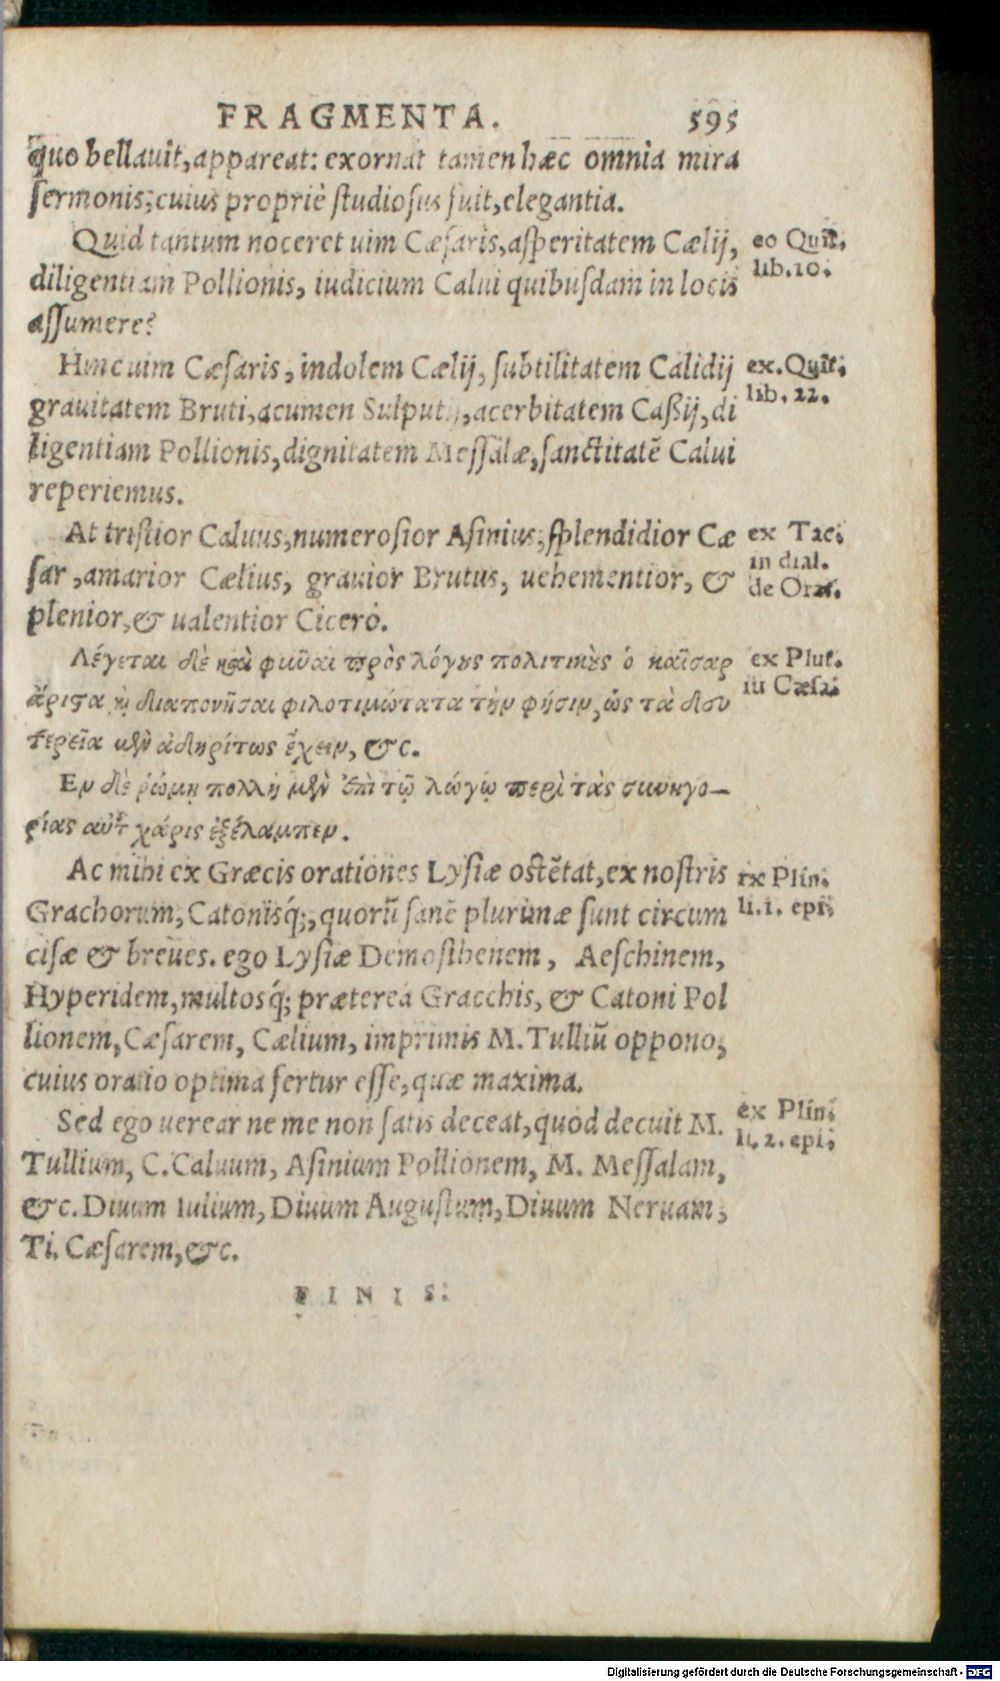 FRAGMENTA. 595
quo bellauit, appareat: exornat tamen hæc omnia mira
sermonis, cuius propriè studiosus fuit, elegantia.
Quid tantum noceret uim Cæsaris, asperitatem Cælij, eo Quīt.
diligentiam Pollionis, iudicium Calui quibusdam in locis lib.10.
assumere?
Hinc uim Cæsaris, indolem Cælij, subtilitatem Calidij ex. Quīt.
grauitatem Bruti, acumen Sulputij, acerbitatem Caßij, di lib. 12.
ligentiam Pollionis, dignitatem Messalæ, sanctitatē Calui
reperiemus.
At tristior Caluus, numerosior Asinius, splendidior Cæ ex Tac.
sar, amarior Cælius, grauior Brutus, uehementior, & in dial.
plenior, & ualentior Cicero. de Orat.
Λέγεται δὲ καὶ φῦναι πρὸς λόγους πολιτικὸς ὁ καῖσαρ ex Plut.
ἄριστα κ διαπονῆσαι φιλοτιμώτατα τὴν φήσιν, ὡς τὰ δευ in Cæsa.
τερεῖα μὲν ἀδηρίτως ἔχειν, &c.
Εν δὲ ῥώμῃ πολλὴ μὲν ἐπὶ τῷ λώγῳ περὶ τὰς συνηγο-
ρίας αὐτ χάρις ἐξέλαμπεν.
Ac mihi ex Græcis orationes Lysiæ ostētat, ex nostris ex Plin.
Grachorum, Catonisq́;, quorū sanè plurimæ sunt circum li.1. epi.
cisæ & breues. ego Lysiæ Demosthenem, Aeschinem,
Hyperidem, multosq́; præterea Gracchis, & Catoni Pol
lionem, Cæsarem, Cælium, imprimis M. Tulliū oppono,
cuius oratio optima fertur esse, quæ maxima.
Sed ego uerear ne me non satis deceat, quod decuit M. ex Plin.
Tullium, C. Caluum, Asinium Pollionem, M. Messalam, li. 2. epi.
&c. Diuum Iulium, Diuum Augustum, Diuum Neruam,
Ti. Cæsarem, &c.
FINIS.
Digitalisierung gefördert durch die Deutsche Forschungsgemeinschaft - DFG